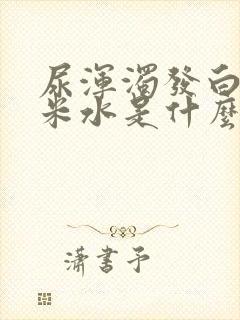 尿渾濁發白
米水是什麼
瀟書予